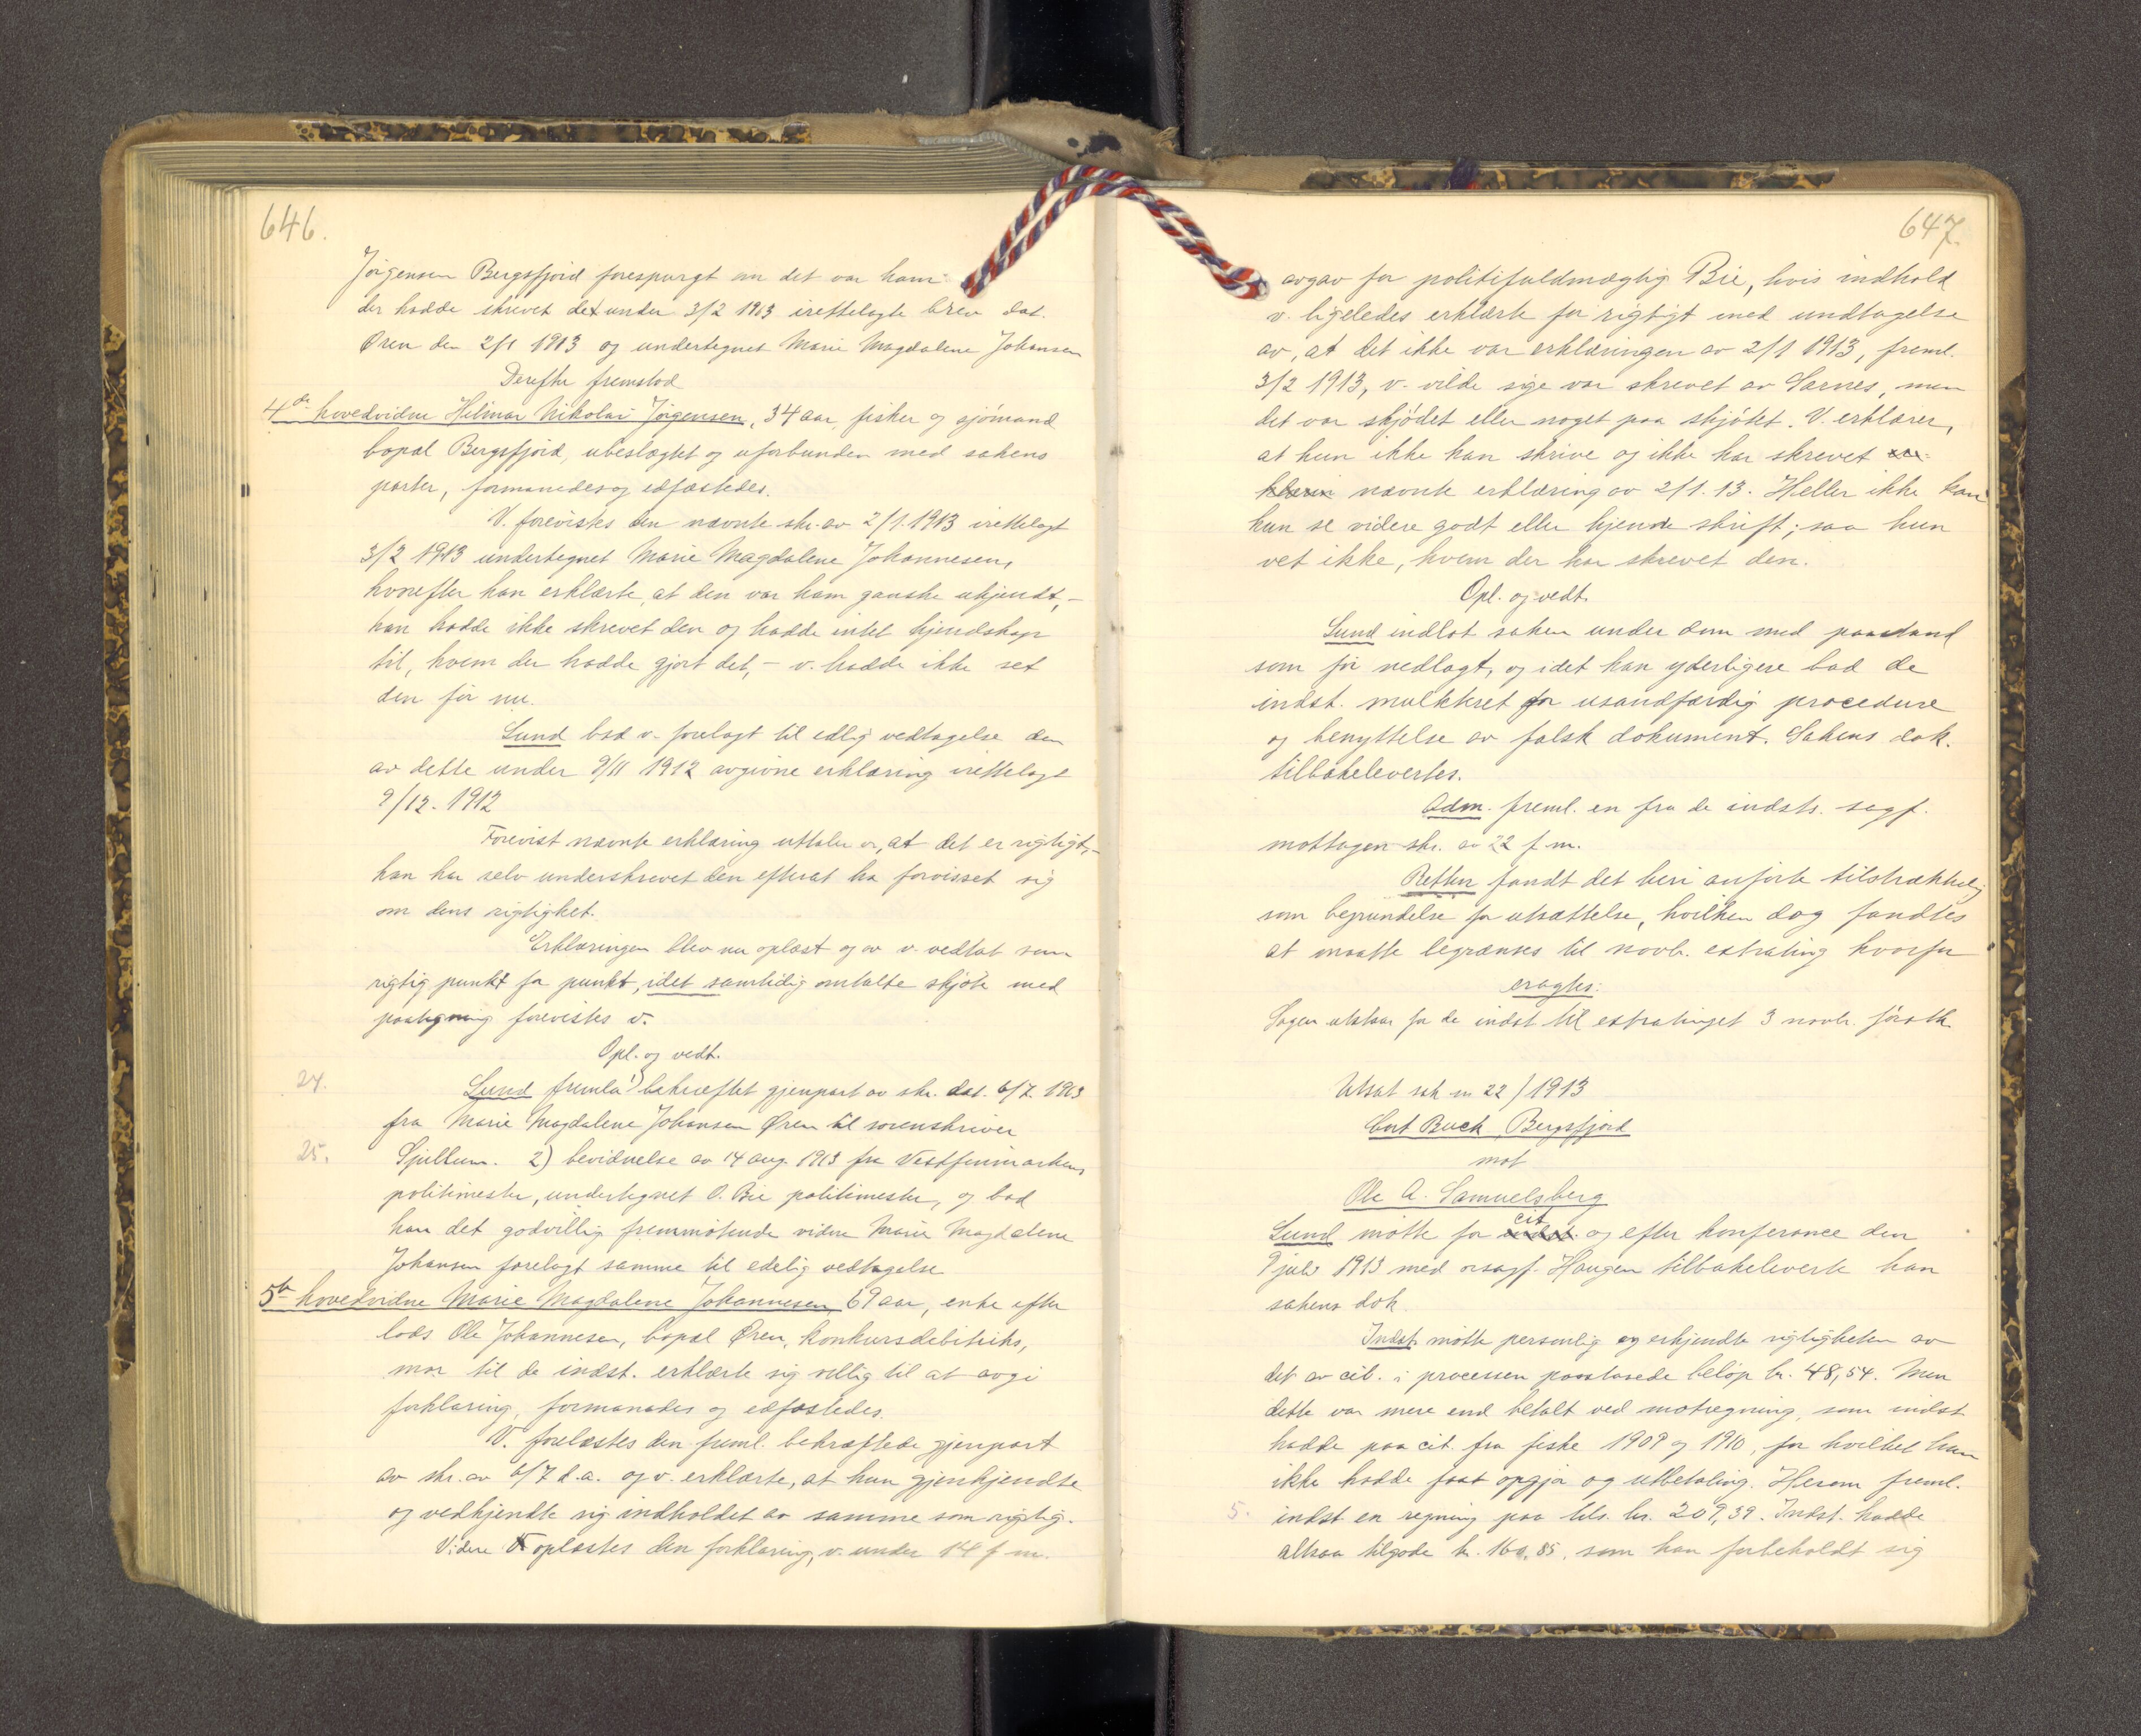 646.
Jørgensen Bergsfjord forespurgt om det var ham
der hadde skrevet det under 3/2 1913 irettelagte brev dat.
Øren den 2/1 1913 og undertegnet Marie Magdalene Johansen
Derefter fremstod
4de hovedvidne Hilmar Nikolai Jørgensen, 34 aar, fisker og sjømand
bopæl Bergsfjord, ubeslægtet og uforbunden med sakens
parter, formanedes og edfæstedes.
V. forevistes den nævnte skr. av 2/1. 1913 irettelagt
3/2 1913 undertegnet Marie Magdalene Johannesen,
hvorefter han erklærte, at den var ham ganske ukjendt, –
han hadde ikke skrevet den og hadde intet kjendskap
til, hvem der hadde gjort det, – v. hadde ikke set
den før nu.
Lund bad v. forelagt til edlig vedtagelse den
av dette under 9/11 1912 avgivne erklæring irettelagt
9/12. 1912
Forevist nævnte erklæring uttaler v., at det er rigtigt, –
han har selv underskrevet den efterat ha forvisset sig
om dens rigtighet.
Erklæringen blev nu oplæst og av v. vedtat som
rigtig punkt for punkt, idet samtidig omtalte skjøte med
paategning forevistes v.
Opl. og vedt.
24. Lund fremla 1) bekræftet gjenpart av skr. dat. 6/7. 1913
fra Marie Magdalene Johansen Øren til sorenskriver
25. Gjullum. 2) bevidnelse av 14 aug. 1913 fra Vestfinmarkens
politimester, undertegnet O. Bie politimester, og bad
han det godvillig fremmøtende vidne Marie Magdalene
Johansen forelagt samme til edelig vedtagelse
5te hovedvidne Marie Magdalene Johannesen, 69 aar, enke efter
lods Ole Johannesen, bopæl Øren, konkursdebitriks,
mor til de indst. erklærte sig villig til at avgi
forklaring, formanedes og edfæstedes.
V. forelæstes den freml. bekræftede gjenpart
av skr. av 6/7 d.a. og v. erklærte, at hun gjenkjendte
og vedkjendte sig indholdet av samme som rigtig.
Videre oplæstes den forklaring, v. under 14 f. m.
647.
avgav for politifuldmægtig Bie, hvis indhold
v. ligeledes erklærte for rigtigt med undtagelse
av, at det ikke var erklæringen av 2/1 1913, freml.
3/2 1913, v. vilde sige var skrevet av Sarnes, men
det var skjødet eller noget paa skjøtet. V. erklærer,
at hun ikke kan skrive og ikke har skrevet
nævnte erklæring av 2/1. 13. Heller ikke kan
hun se videre godt eller kjende skrift; saa hun
vet ikke, hvem der har skrevet den.
Opl. og vedt.
Lund indlot saken under dom med paastand
som før nedlagt, og idet han yderligere bad de
indst. mulkteret for usandfærdig procedure
og benyttelse av falsk dokument. Sakens dok.
tilbakelevertes.
Adm. freml. en fra de indsts. sagf.
mottagen skr. av 22 f. m.
Retten fandt det heri anførte tilstrækkelig
som begrundelse for utsættelse, hvilken dog fandtes
at maatte begrænses til novbr. extrating hvorfor
eragtes:
Sagen utstaar for de indst. til extratinget 3 novbr. førstk.
Utsat sak nr 22 / 1913
Cort Buck, Bergsfjord
mot
Ole A. Samuelsberg
Lund møtte for cit. og efter konferance den
9 juli 1913 med orsagf. Haugen tilbakeleverte han
sakens dok.
Indst. møtte personlig og erkjendte rigtigheten av
det av cit. i processen paastaaede beløp kr. 48,54. Men
dette var mere end betalt ved motregning, som indst
hadde paa cit. fra fiske 1909 og 1910, for hvilket han
ikke hadde faat opgjør og utbetaling. Herom freml.
5. indst en regning paa tils. kr. 209,39. Indst. hadde
altsaa tilgode kr. 160,85, som han forbeholdt sig